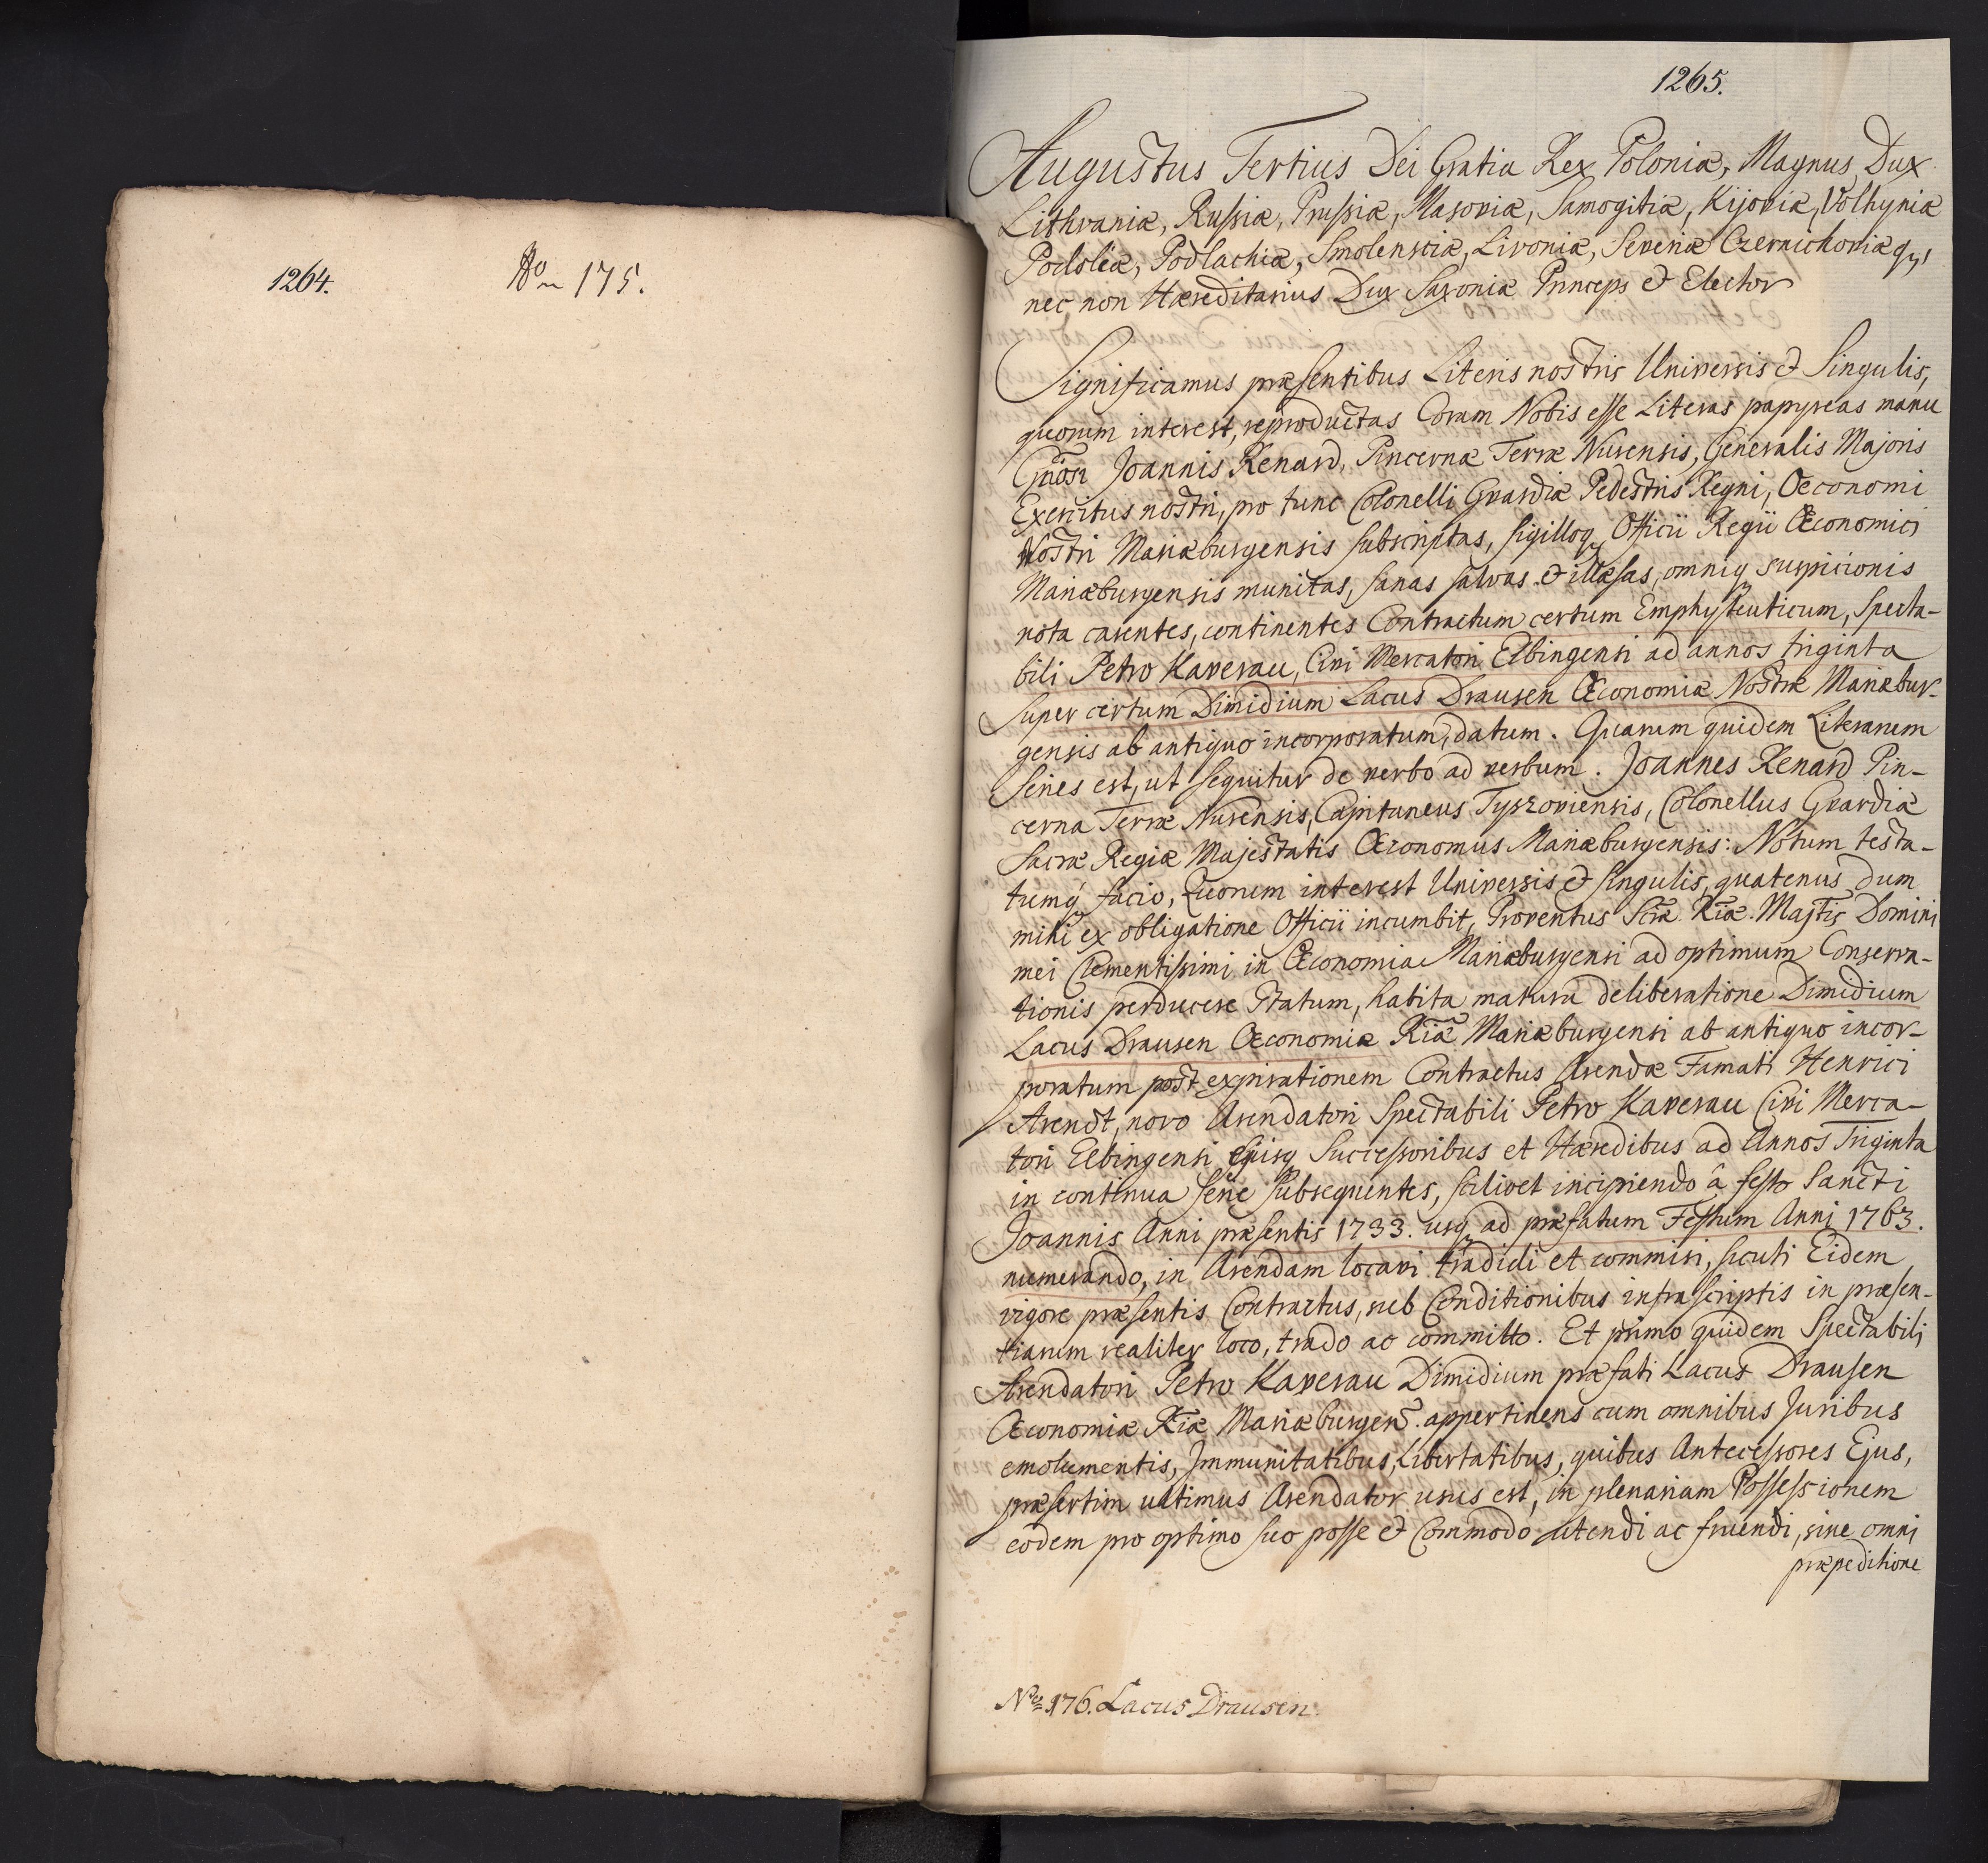 1264.
No 175.
1265.
Augustus Tertius Dei Gratia Rex Poloniæ, Magnus Dux
Lithvaniæ, Russiæ, Prussiæ, Masoviæ, Samogitiæ, Kijoviæ, Volhyniæ
Podoliæ, Podlachiæ, Smolensciæ, Livoniæ, Severiæ Czernichoviæq,
nec non Hæreditarius Dux Saxoniæ Princeps et Elector
Significamus præsentibus Literis nostris Universis et Singulis,
quorum interest, reproductas Coram Nobis esse Literas papyreas manu
Gnosi Joannis Renard, Pincernæ Terræ Nurensis, Generalis Majoris
Exercitus nostri, pro tunc Colonelli Gvardiæ Pedestris Regni, Œconomi
Nostri Mariæburgensis subscriptas, sigilloq Officii Regii Œconomici
Mariæburgensis munitas, sanas salvas et illæsas, omniq suspicionis
nota carentes, continentes Contractum certum Emphyteuticum, Specta-
bili Petro Kaverau, Civi Mercatori Elbingensi ad annos triginta
super certum Dimidium Lacus Drausen Œconomiæ Nostræ Mariæbur-
gensis ab antiquo incorporatum, datum. Quarum quidem Literarum
Series est, ut sequitur de verbo ad verbum. Joannes Renard Pin-
cerna Terræ Nurensis, Capitaneus Tyszoviensis, Colonellus Gvardiæ
Sacræ Regiæ Majestatis Œconomus Mariæburgensis: Notum testa-
tumq facio, Quorum interest Universis et singulis, quatenus dum
mihi ex obligatione Officii incumbit, Proventus Scæ Riæ Majtis Domini
mei Clementissimi in Œconomia Mariæburgensi ad optimum Conserva-
tionis perducere Statum, habita matura deliberatione Dimidium
Lacus Drausen Œconomiæ Riæ Mariæburgensi ab antiquo incor-
poratum post expirationem Contractus Arendæ Famati Henrici
Arendt, novo Arendatori Spectabili Petro Kaverau Civi Merca-
tori Elbingensi Ejusq Successoribus et Hæredibus ad Annos Triginta
in continua serie subsequentes, scilicet incipiendo â festo Sancti
Joannis Anni præsentis 1733. usq ad præfatum Festum Anni 1763.
numerando, in Arendam locavi tradidi et commisi, sicuti Eidem
vigore præsentis Contractus, sub Conditionibus infrascriptis in præsen-
tiarum realiter loco, trado ac committo. Et primo quidem Spectabili
Arendatori Petro Kaverau Dimidium præfati Lacus Drausen
Œconomiæ Riæ Mariæburgen. appertinens cum omnibus Juribus
emolumentis, Jmmunitatibus, Libertatibus, quibus Antecessores Ejus,
præsertim ultimus Arendator usus est, in plenariam Possessionem
eodem pro optimo suo posse et Commodo utendi ac fruendi, sine omni
præpeditione
No 176. Lacus Drausen.